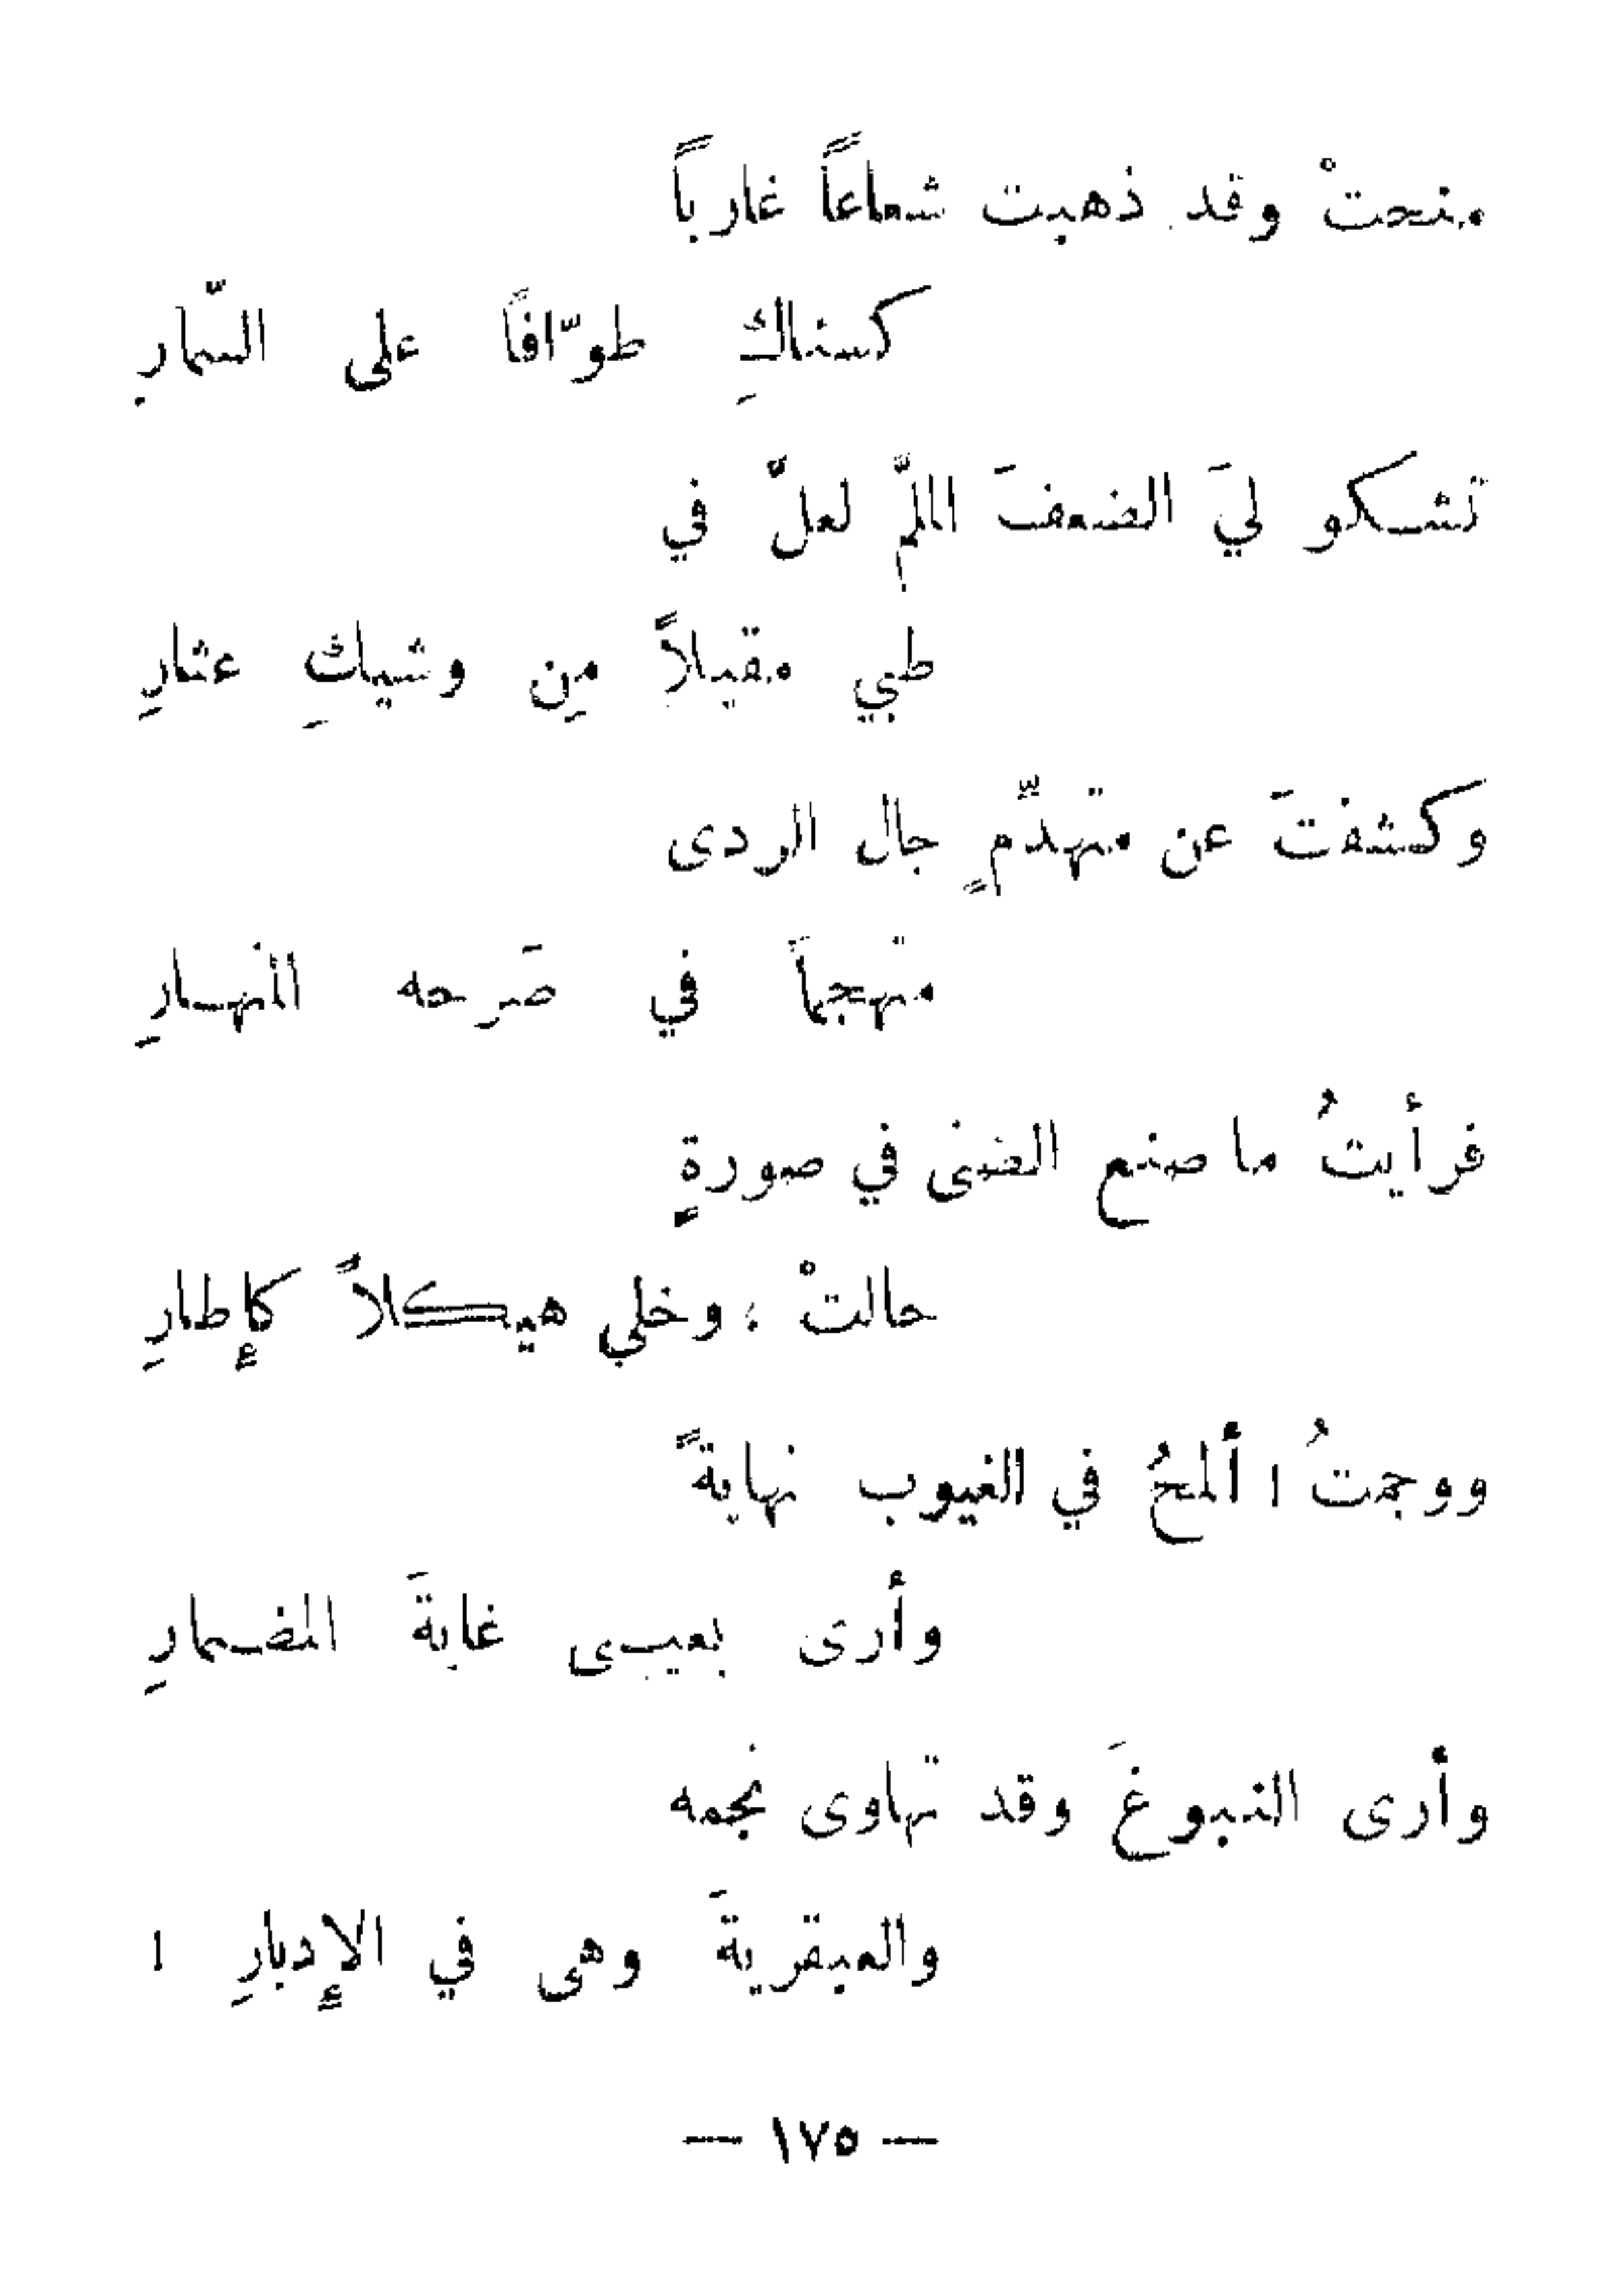 منحتْ وقد ذهبت شعاعاً غارباً
كسناكِ طوّافاً على السّمارِ
تشكو ليَ الضعفَ الملمّ لعلّ في
طبي مقيلاً مِن وشيكِ عثارِ
وكشفتَ عن متهدّمٍ جال الردى
متهجماً في صَرحه المنهارِ
فرأيتُ ما صنع الضنى في صورةٍ
حالتْ ، وخلي هيكلاً كإطارِ
ووجمتُ ! ألمحُ في الغيوب نهايةً
وأرى بعيبى غايةَ المضمارِ
وأرى النبوغَ وقد تهاوى نجمه
والعبقريةَ وهى في الإدبارِ !
— ١٧٥ —